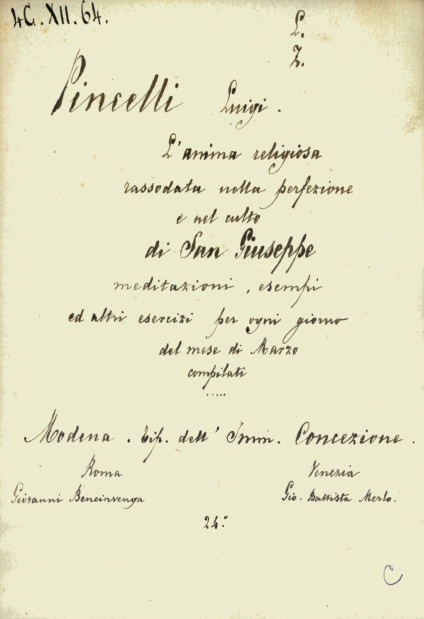 4G.XII.64.
L.
Z.
Pincelli Luigi.
L'anima religiosa
rassodata nella perfezione
e nel culto
di San Giuseppe
meditazioni, esempi
ed altri esercizi per ogni giorno
del mese di Marzo
compilati
.....
Modena. Tip. dell' Imm. Concezione.
Roma Venezia
Giovanni Bencinvenga Gio. Battista Merlo.
24.°
C